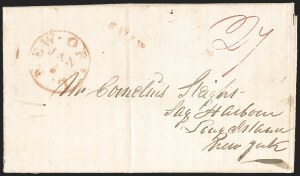 NEW-ORL
JAN
27
Mr Cornelius Sleight
Sag Harbour
Long Island
New York